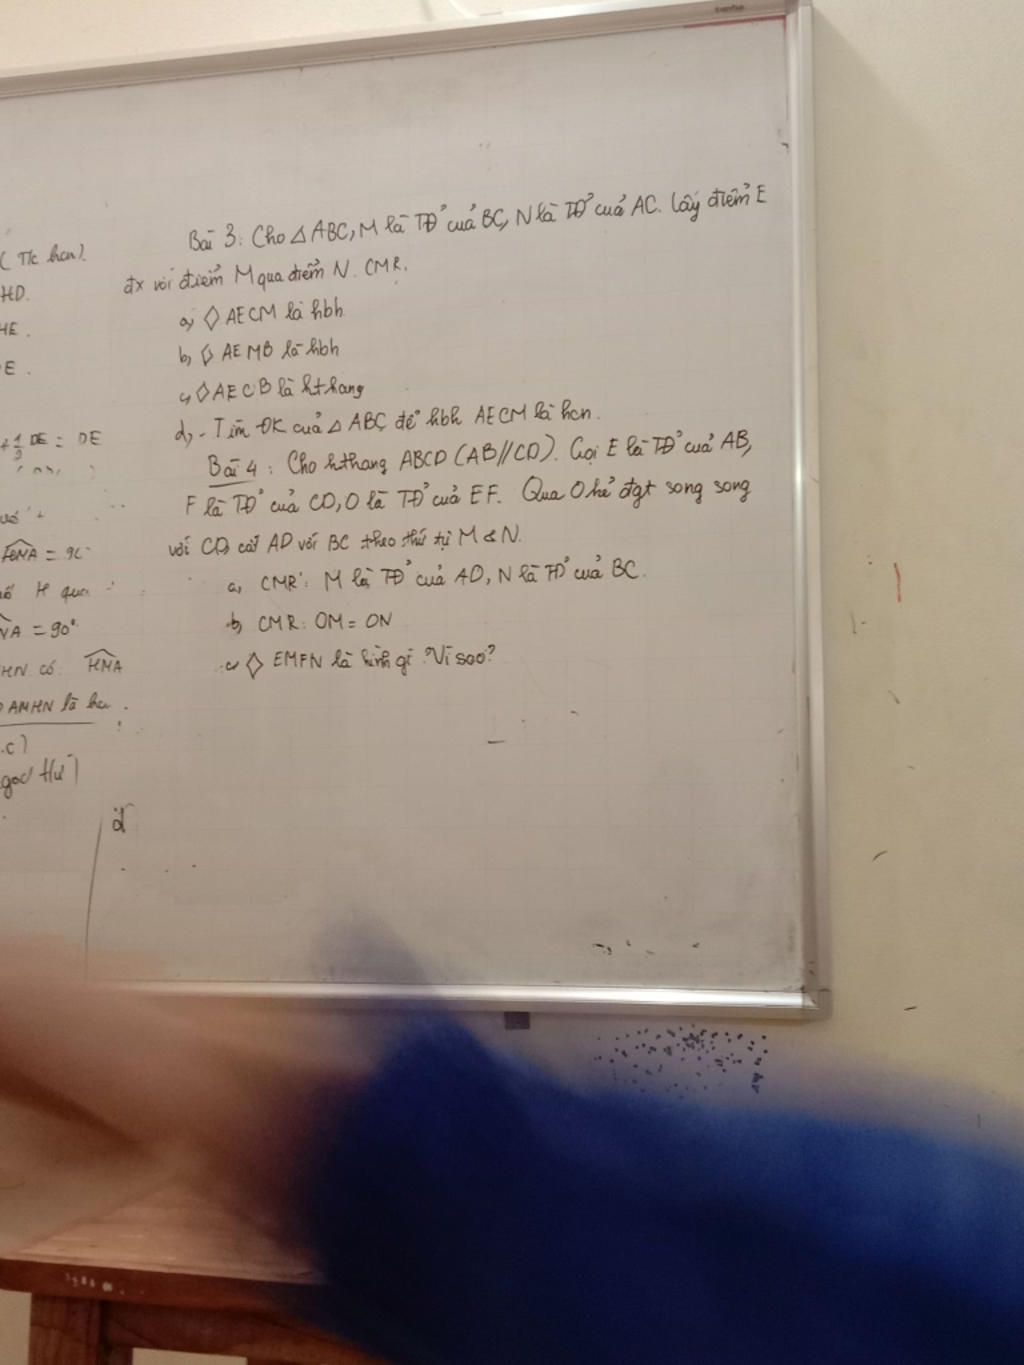 ( T/c hcn).
HD.
HE.
DE.
+ 1/2 DE = DE
= 90°
H qua
NA = 90°
HN có: HMA
AMHN là hcn.
.c)
Bài 3: Cho △ABC, M là TĐ' của BC, N là TĐ' của AC. Lấy điểm E
đx với điểm M qua điểm N. CMR.
a, ◇ AECM là hbh
b, ◇ AEMB là hbh
c, ◇ AECB là hthang
d, - Tìm ĐK của △ ABC để hbh AECM là hcn.
Bài 4: Cho hthang ABCD (AB//CD). Gọi E là TĐ' của AB,
F là TĐ' của CD, O là TĐ' của EF. Qua O kẻ đgt song song
với CD, cắt AD với BC theo thứ tự M & N.
a, CMR: M là TĐ' của AD, N là TĐ' của BC.
b, CMR: OM = ON
c, ◇ EMFN là hình gì? Vì sao?